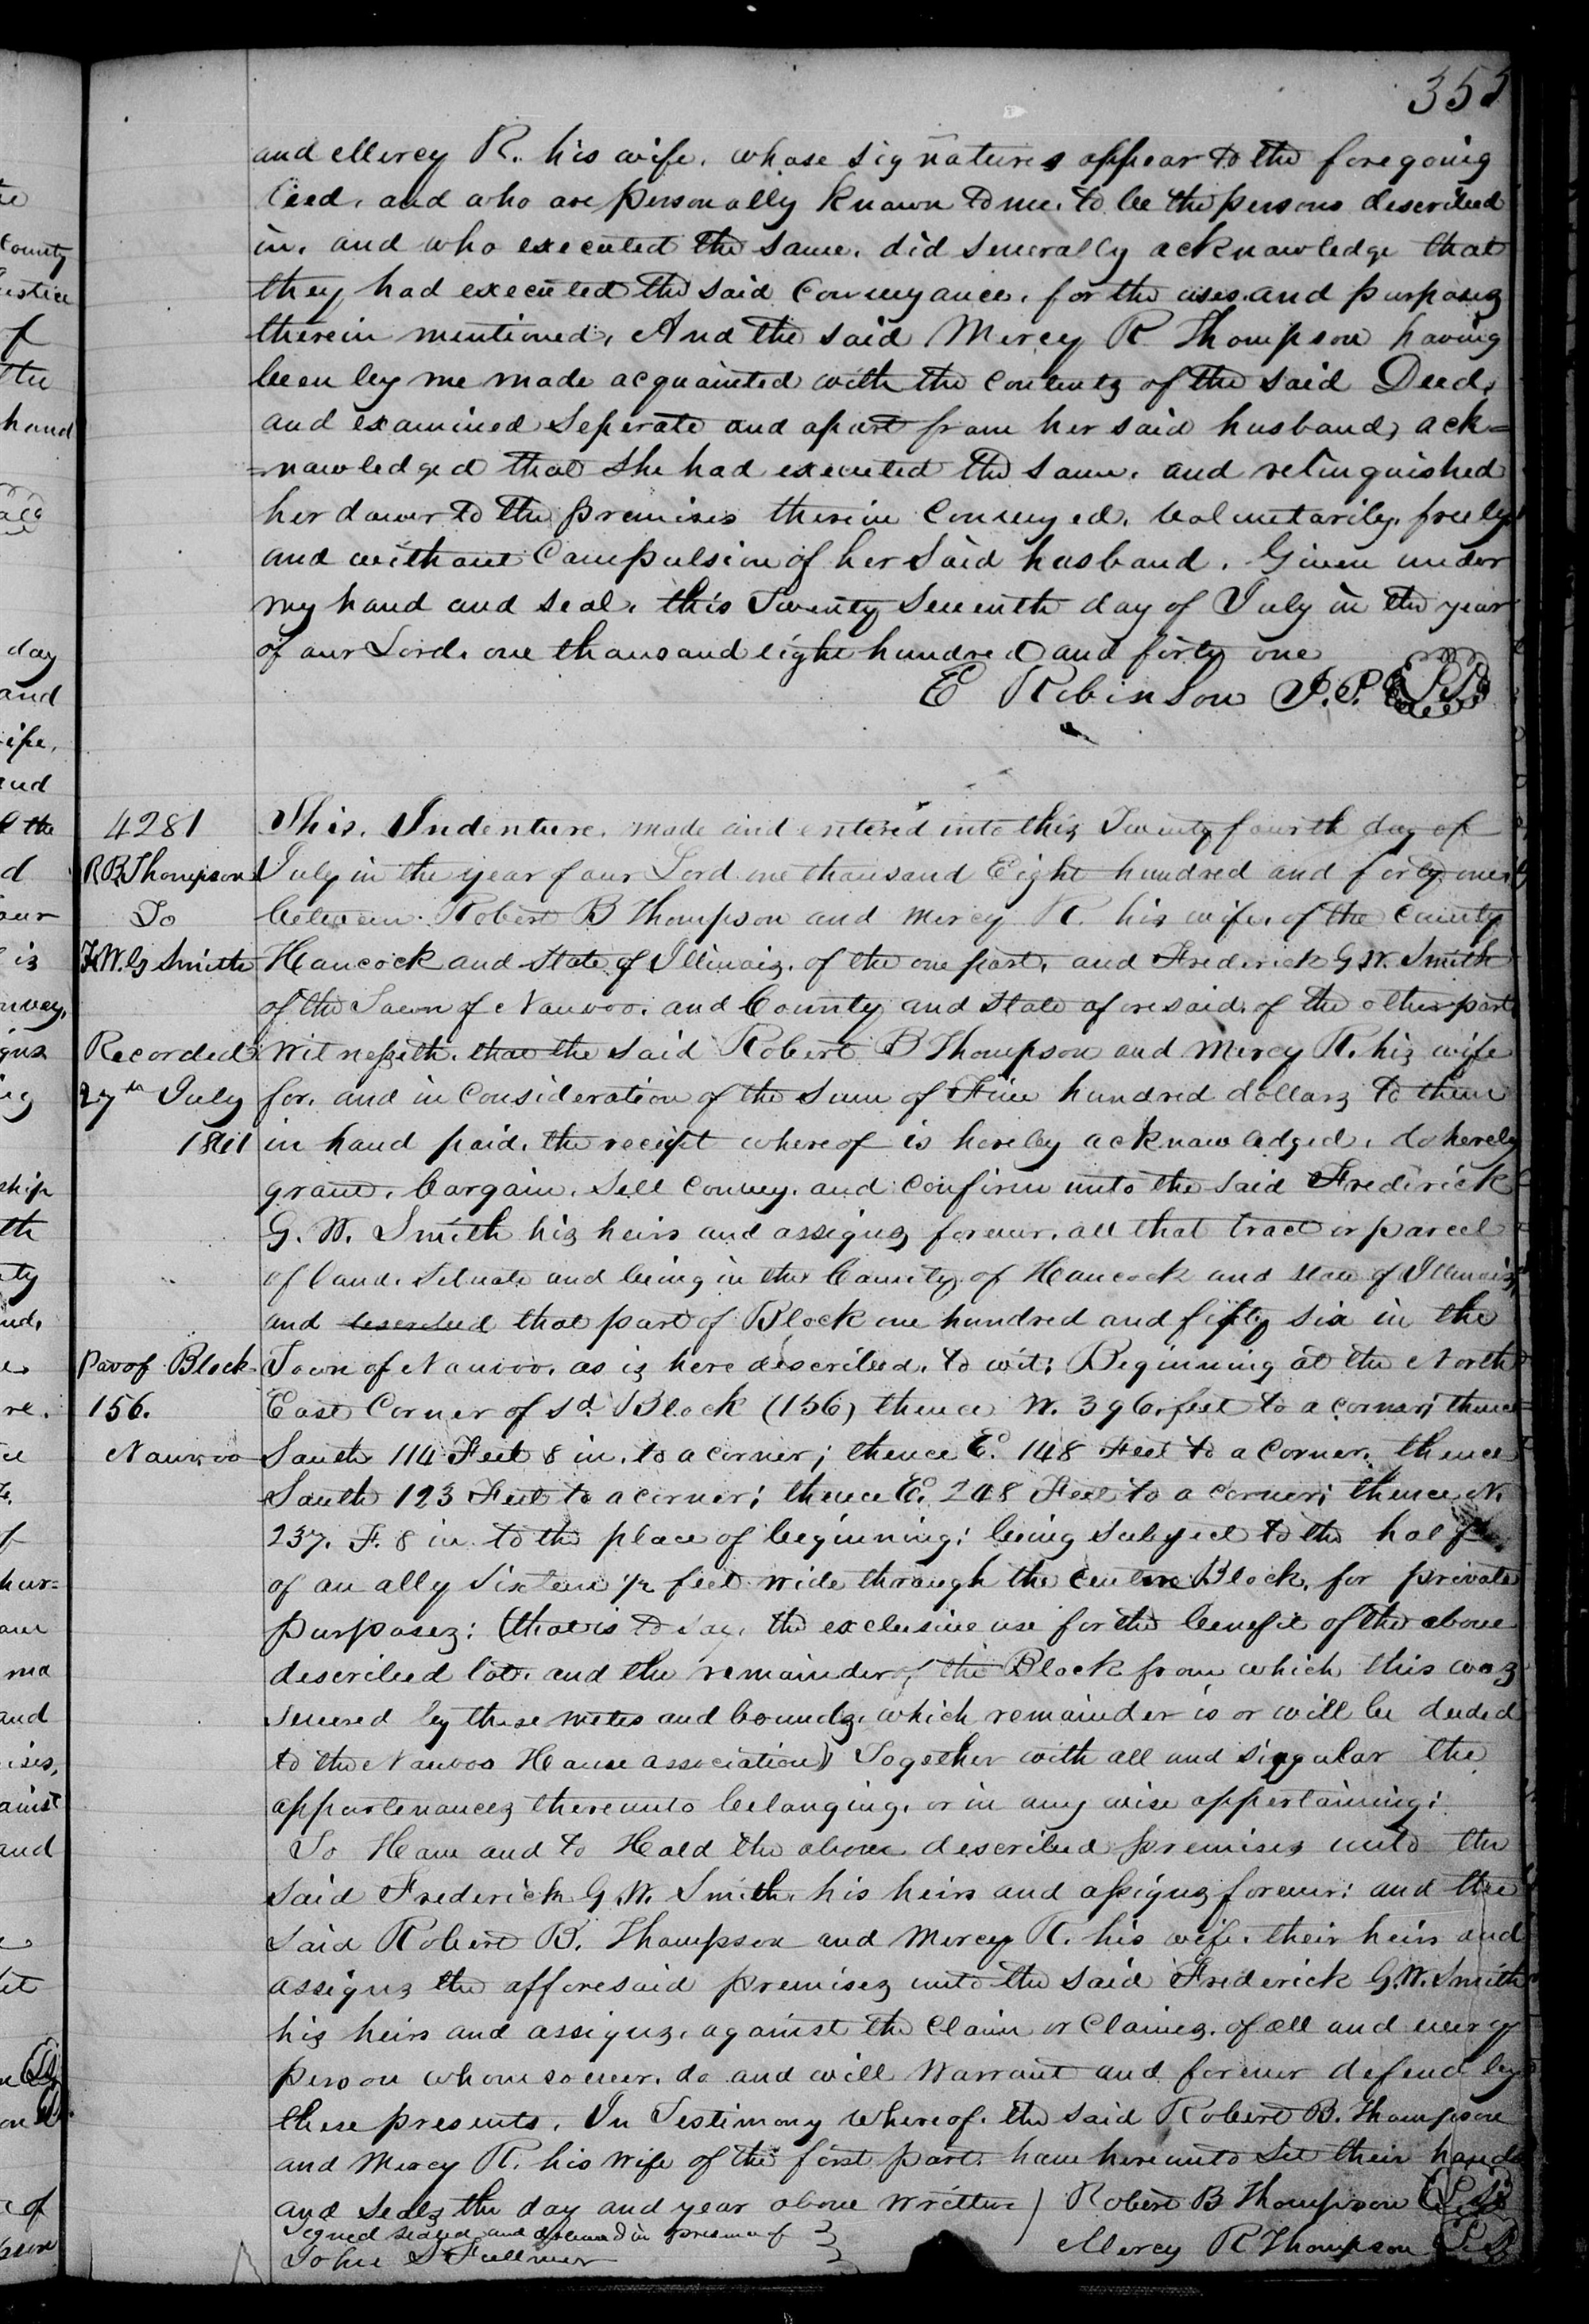 353
and Mercy R. his wife, whose signatures appear to the foregoing
Deed, and who are personally known to me, to be the persons described
in, and who executed the same, did severally acknowledge that
they had executed the said Conveyance, for the uses and purposes
therein mentioned, And the said Mercy R Thompson having
been by me made acquainted with the contents of the said Deed,
and examined Seperate and apart from her said husband, ack=
=nowledged that she had executed the same, and relinquished
her dower to the premises therein Conveyed, Voluntarily, freely
and without Compulsion of her Said husband. Given under
my hand and seal, this Twenty Seventh day of July in the year
of our Lord, one thousand eight hundred and forty one
E Robinson J.P.
4281
R B Thompson
To
F.W.G Smith
Recorded
27th July
1841
This, Indenture, made and entered into this Twenty fourth day of
July in the year of our Lord one thousand Eight hundred and forty one
between Robert B Thompson and Mercy R. his wife, of the County
Hancock and State of Illinois, of the one part, and Frederick G.W. Smith
of the Town of Nauvoo, and County and State aforesaid, of the other part
Witnesseth, that the said Robert B Thompson and Mercy R. his wife
for, and in Consideration of the Sum of Five hundred dollars to them
in hand paid, the receipt whereof is hereby acknowledged, do hereby
grant, bargain, Sell Convey, and Confirm unto the said Frederick
G. W. Smith his heirs and assigns, forever, all that tract or parcel
of land, Situate and being in the County of Hancock and State of Illinois,
and described that part of Block one hundred and fifty six in the
Par of Block
156.
Nauvoo
Town of Nauvoo, as is here described, to wit: Beginning at the North
East Corner of sd. Block (156) thence W. 396. feet to a corner; thence
South 114 Feet 8 in. to a corner; thence E. 148 Feet to a Corner, thence
South 123 Feet to a corner; thence E. 248 Feet to a corner; thence N.
237. F. 8 in to the place of beginning: being Subject to the half
of an ally Sixteen 1/2 feet wide through the centre Block, for private
purposes: (that is to say, the exclusive use for the benefit of the above
described lot, and the remainder of the Block from which this was
severed by these metes and bounds, which remainder is or will be deeded
to the Nauvoo House association) Together with all and singular the
appartenances thereunto belonging, or in any wise appertaining:
To Have and to Hold the above described premises unto the
Said Frederick G.W. Smith, his heirs and assigns forever: and the
Said Robert B. Thompson and Mercy R. his wife, their heirs and
assigns the afforesaid premises unto the said Frederick G.W. Smith
his heirs and assigns, against the Claim or Claims, of all and every
person whomsoever, do and will Warrant and forever defend by
these presents. In Testimony Whereof, the said Robert B. Thompson
and Mercy R. his Wife of the first part, have hereunto Set their hands
and Seals the day and year above Written ) Robert B Thompson
Signed sealed and delivered in presence of
John S Fullmer
Mercy R Thompson